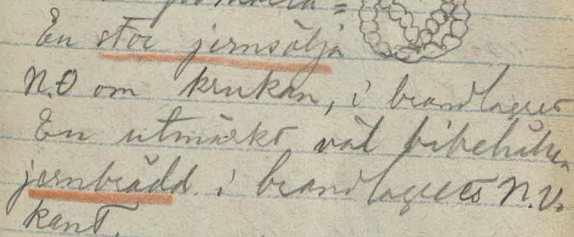 En stor jernsölja
N.O om krukan, i brandlagret
En utmärkt väl bibehållen
jernbrädd i brandlagrets N.V.
kant.